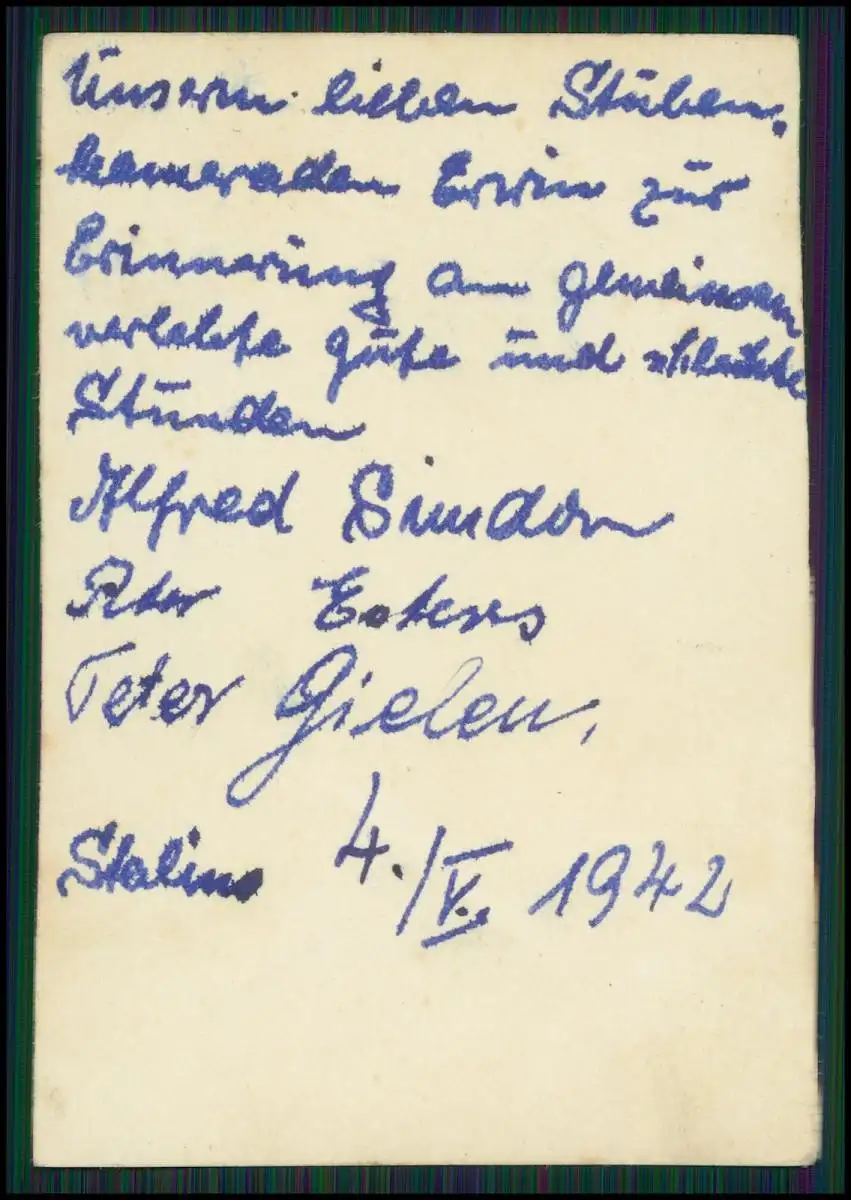 Unserm lieben Stuben-
kameraden Erwin zur
Erinnerung an gemeinsam
verlebte gute und schlechte
Stunden
Alfred
Peter Esters
Peter Gielen,
Stalino 4./V. 1942